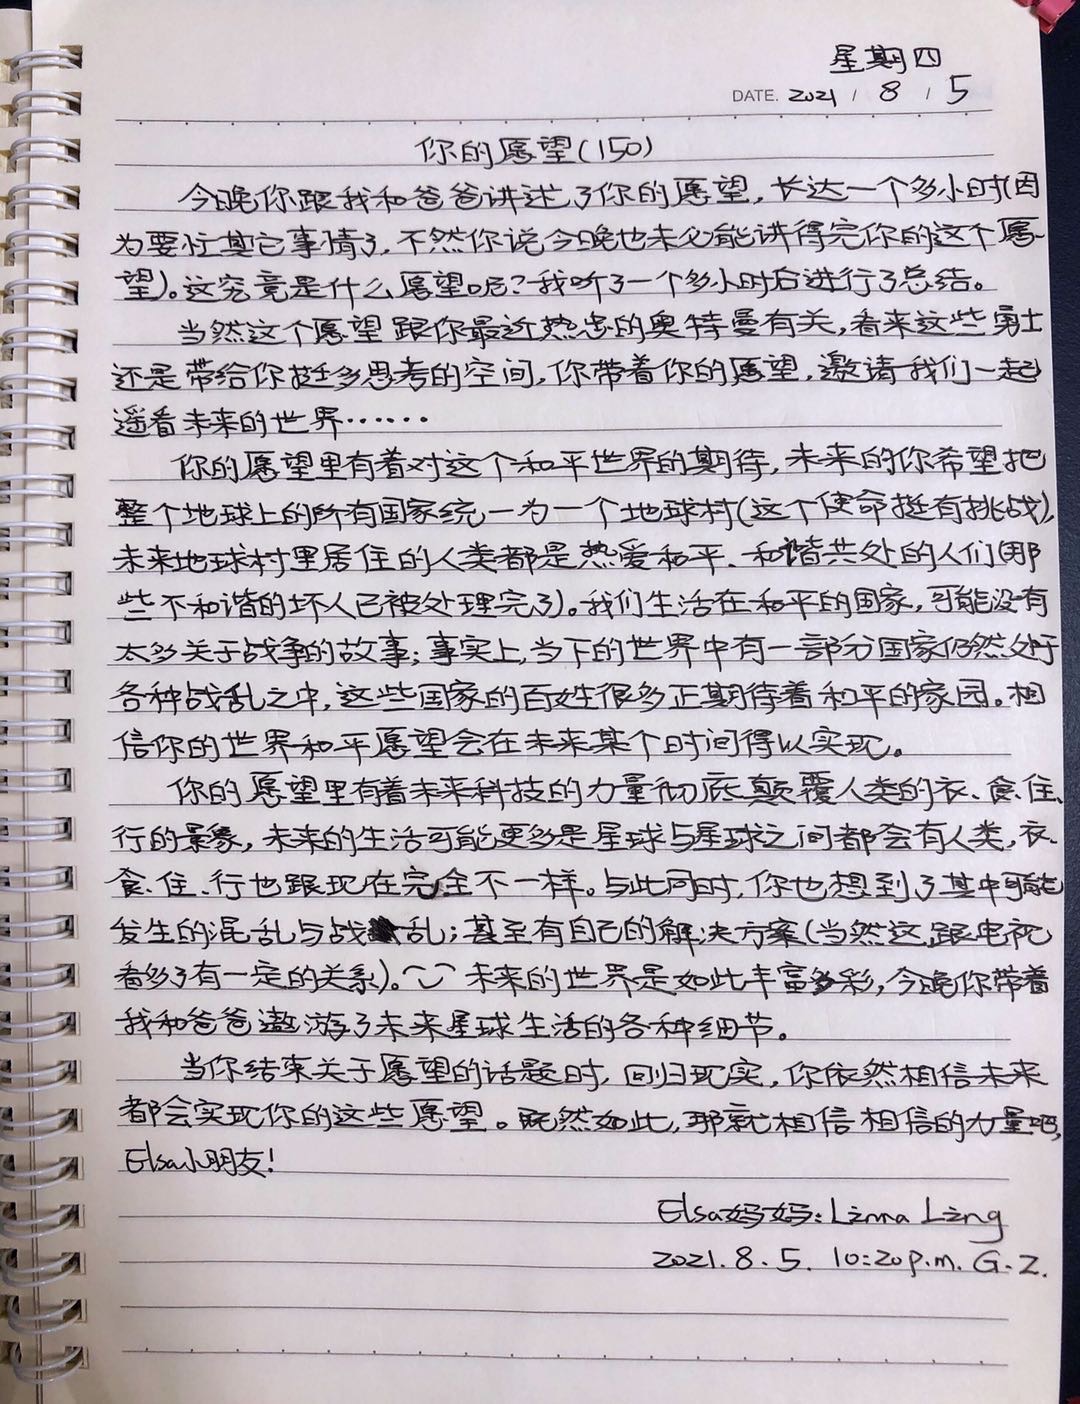 星期四
DATE. 2021 / 8 / 5
你的愿望(150)
今晚你跟我和爸爸讲述了你的愿望,长达一个多小时(因
为要忙其它事情了,不然你说今晚也未必能讲得完你的这个愿
望)。这究竟是什么愿望呢?我听了一个多小时后进行了总结。
当然这个愿望跟你最近热忠的奥特曼有关,看来这些勇士
还是带给你挺多思考的空间,你带着你的愿望,邀请我们一起
遥看未来的世界……
你的愿望里有着对这个和平世界的期待,未来的你希望把
整个地球上的所有国家统一为一个地球村(这个使命挺有挑战),
未来地球村里居住的人类都是热爱和平、和谐共处的人们(那
些不和谐的坏人已被处理完了)。我们生活在和平的国家,可能没有
太多关于战争的故事;事实上,当下的世界中有一部分国家仍然处于
各种战乱之中,这些国家的百姓很多正期待着和平的家园。相
信你的世界和平愿望会在未来某个时间得以实现。
你的愿望里有着未来科技的力量彻底颠覆人类的衣、食、住、
行的景象,未来的生活可能更多是星球与星球之间都会有人类,衣、
食、住、行也跟现在完全不一样。与此同时,你也想到了其中可能
发生的混乱与战乱;甚至有自己的解决方案(当然这跟电视
看多了有一定的关系)。未来的世界是如此丰富多彩,今晚你带着
我和爸爸遨游了未来星球生活的各种细节。
当你结束关于愿望的话题时,回归现实,你依然相信未来
都会实现你的这些愿望。既然如此,那就相信相信的力量吧,
Elsa小朋友!
Elsa妈妈:Linna Ling
2021.8.5. 10:20p.m. G.Z.